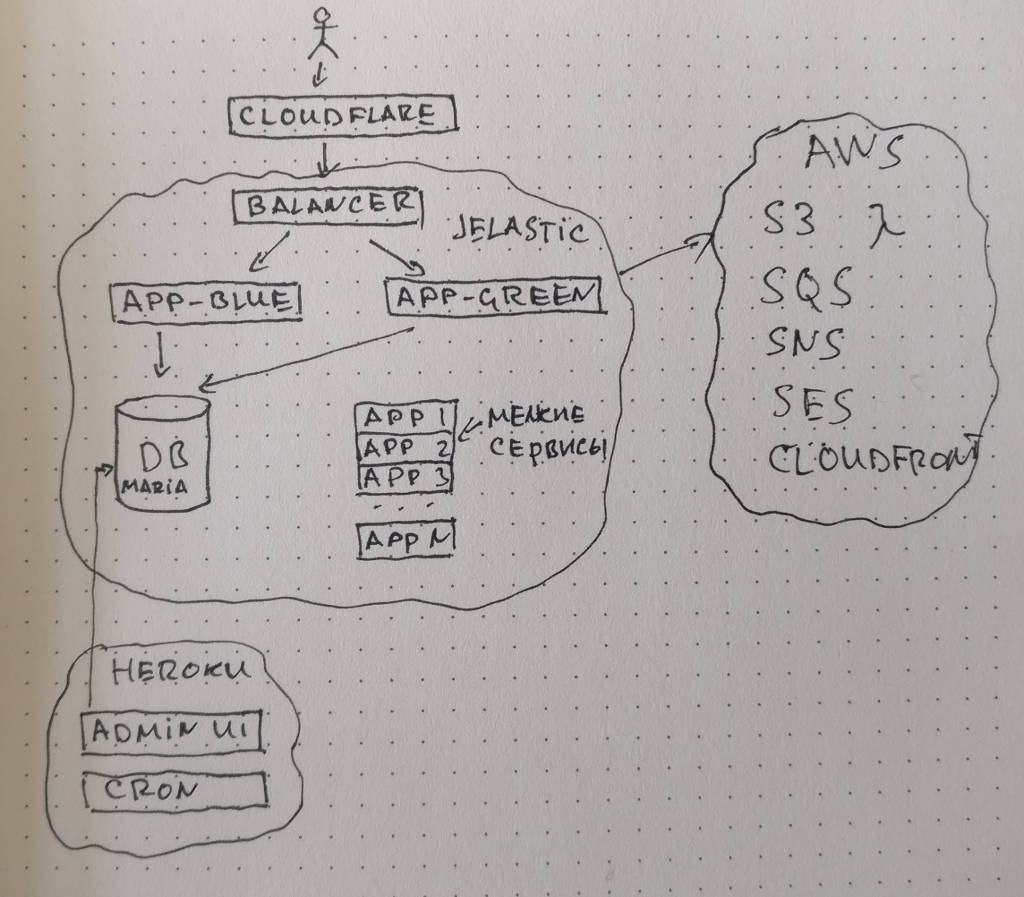 CLOUDFLARE
BALANCER
JELASTIC
APP-BLUE
APP-GREEN
DB
MARIA
APP 1
APP 2
APP 3
. . . .
APP N
МЕЛКИЕ
СЕРВИСЫ
AWS
S3 λ
SQS
SNS
SES
CLOUDFRONT
HEROKU
ADMIN UI
CRON